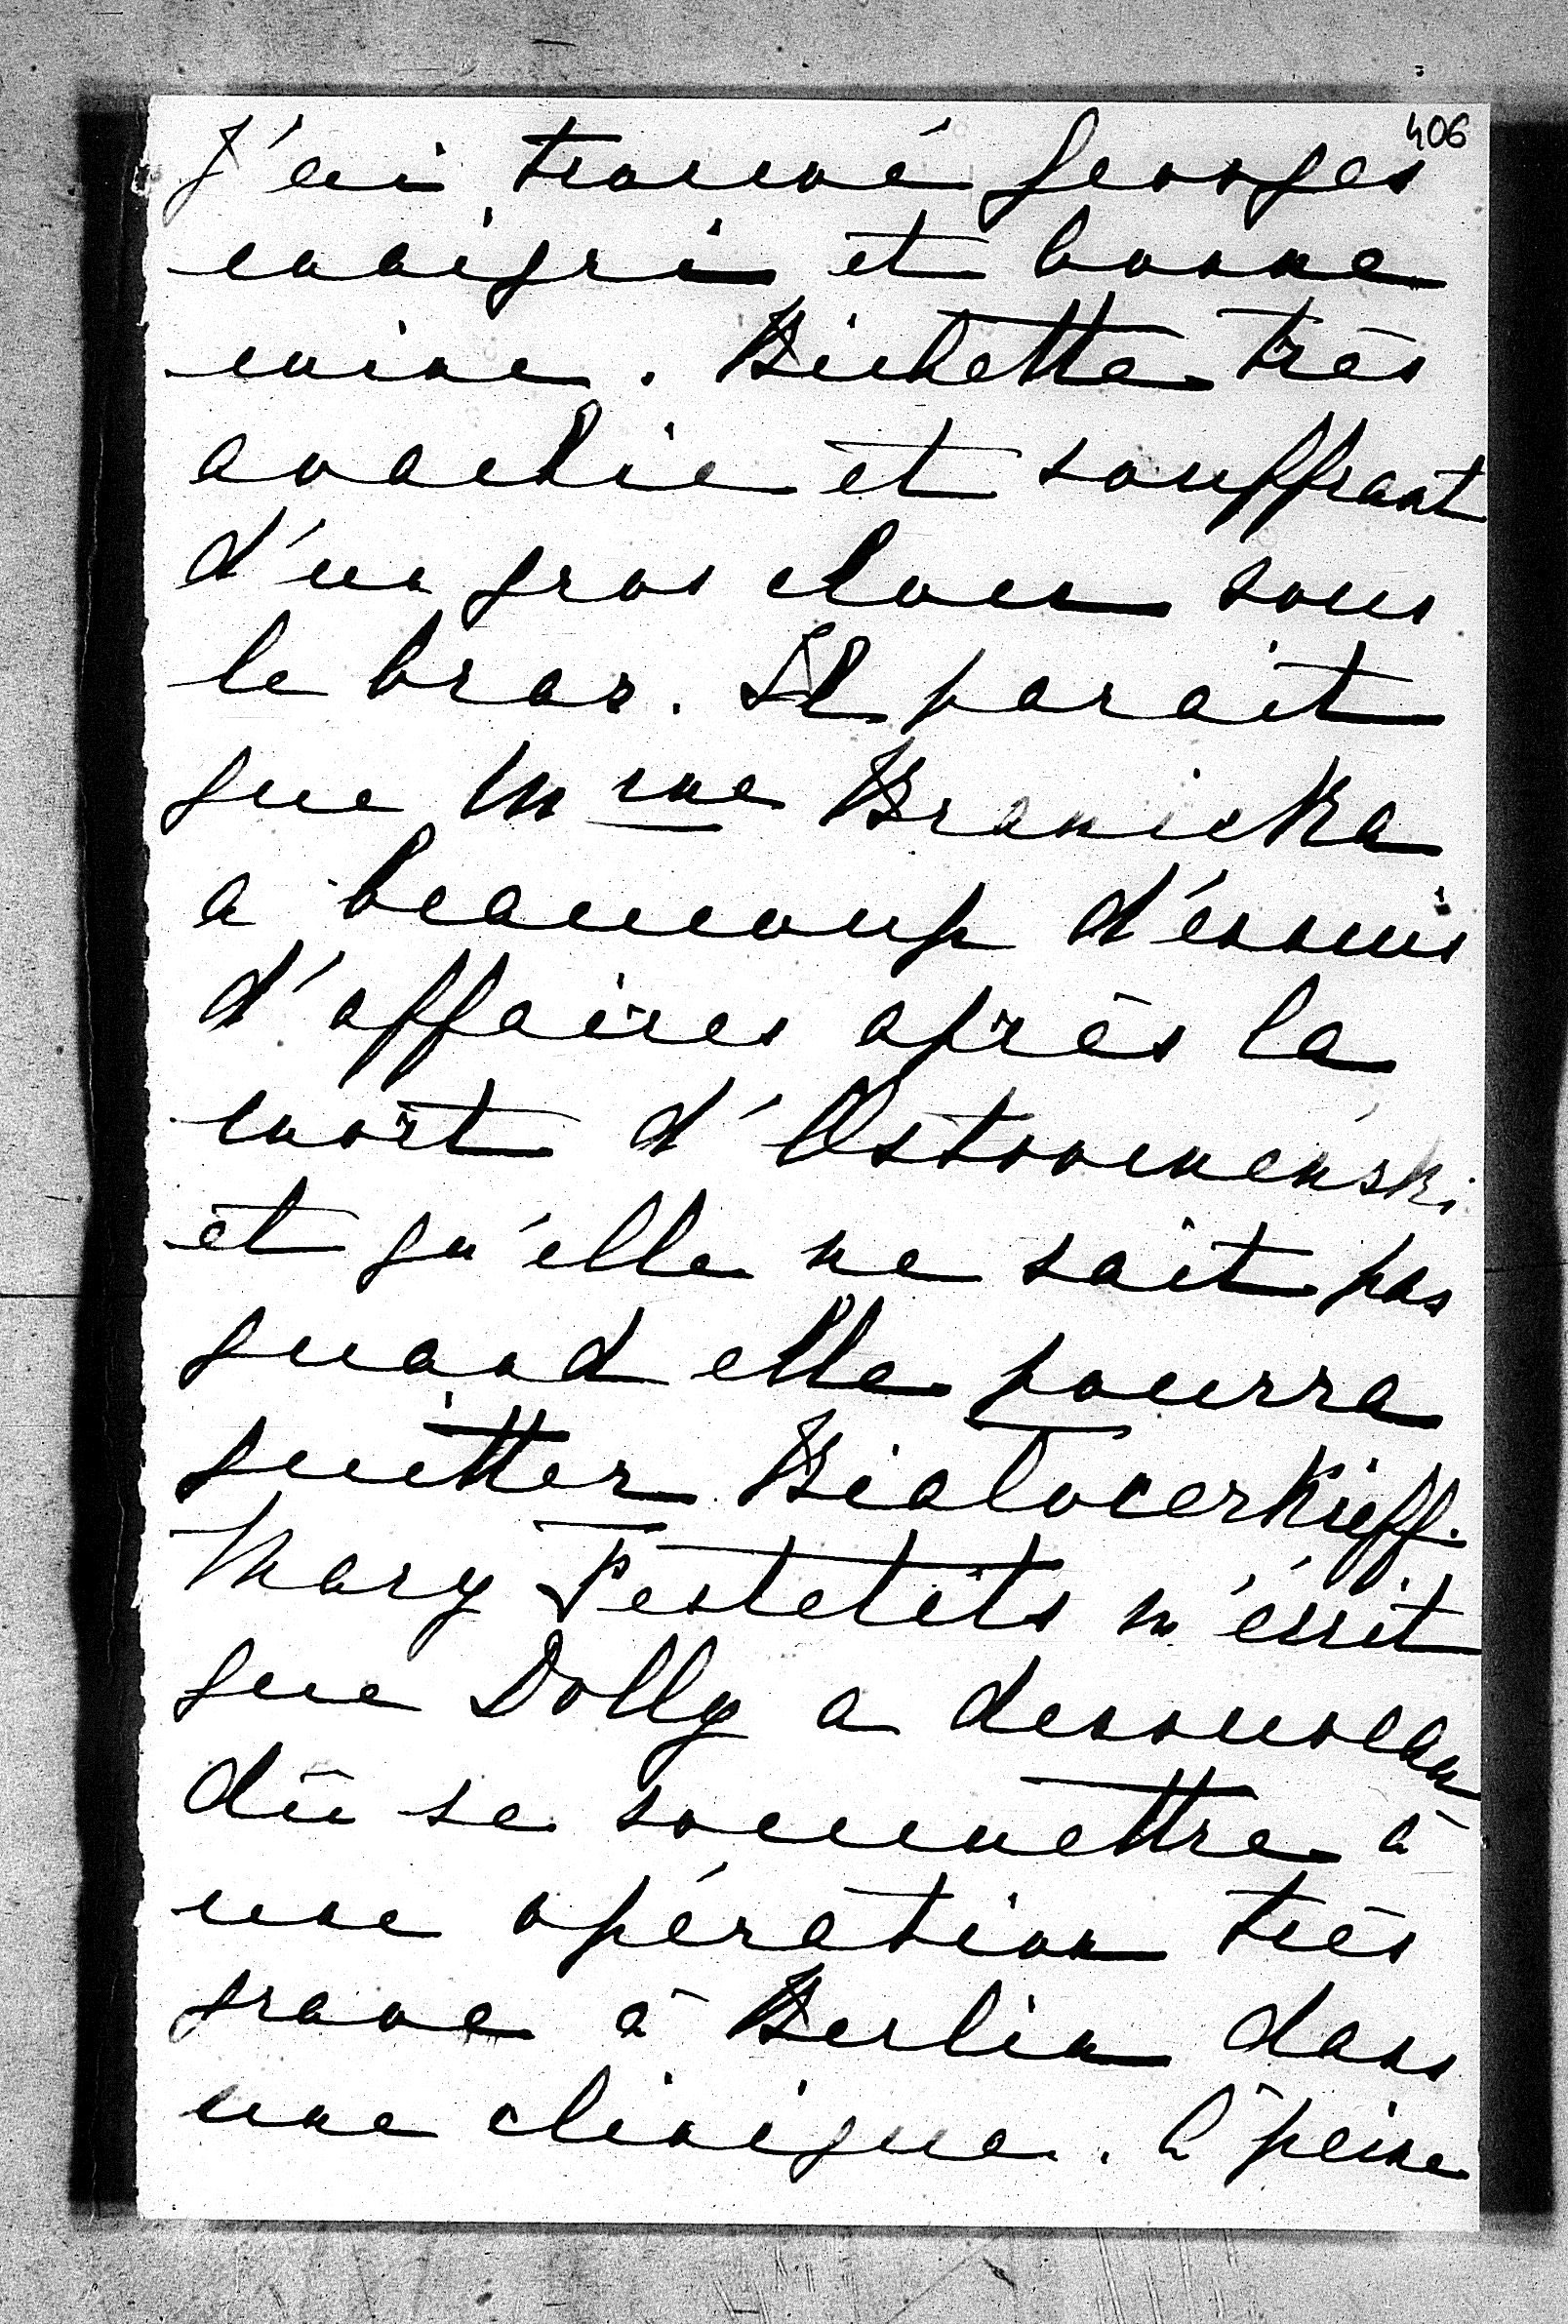 406
J'ai trouvé Georges
maigri et bonne
mine. Bichette très
avachie et souffrant
d'un gros clou sous
le bras. Il parait
que Mme Branicka
a beaucoup d'ennuis
d'affaires après la
mort d'Ostromenski
et qu'elle ne sait pas
quand elle pourra
quitter Bialocerkieff.
Mary Festetits m'écrit
que Dolly a denouveau
dû se soumettre à
une opération très
grave à Berlin dans
une clinique. À peine